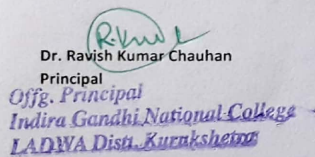 Dr. Ravish Kumar Chauhan
Principal
Offg. Principal
Indira Gandhi National College
LADWA Distt. Kurukshetra